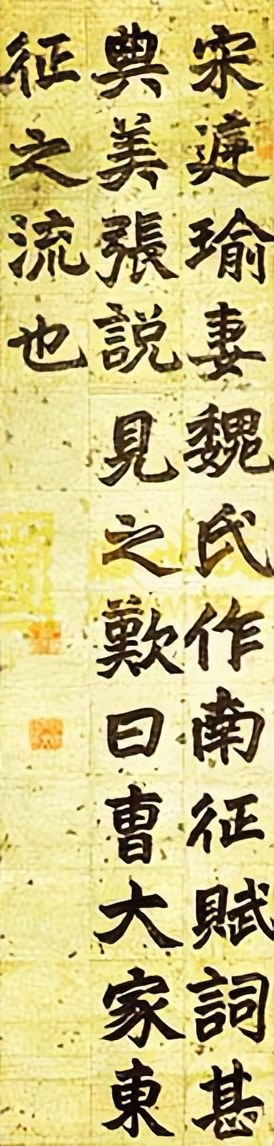 宋遽瑜妻魏氏作南征賦詞甚
典美張説見之歎曰曹大家東
征之流也